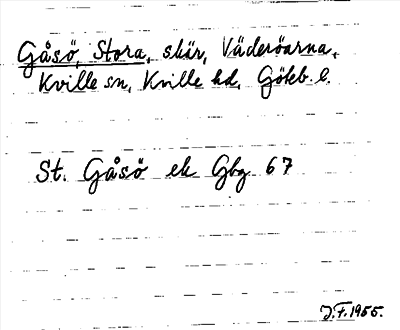 Gåsö, Stora, skär, Väderöarna,
Kville sn, Kville hd, Göteb. l.
St. Gåsö ek Gbg 67
J.F. 1955.